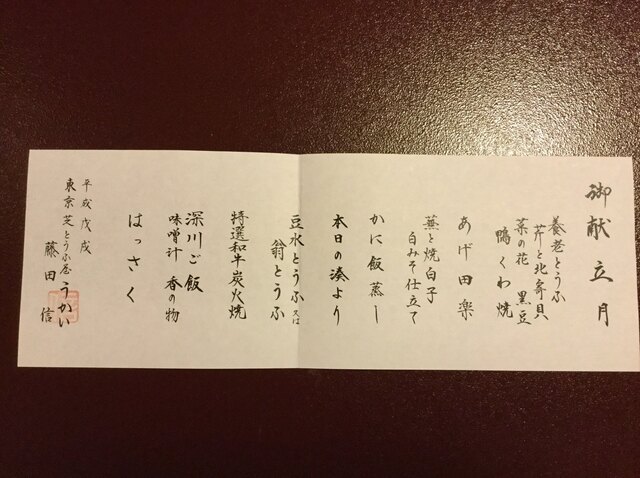 御献立月
養老とうふ
芹と北寄貝
菜の花 黒豆
鴨くわ焼
あげ田楽
蕪と焼白子
白みそ仕立て
かに飯蒸し
本日の湊より
豆水とうふ 又は
翁とうふ
特選和牛炭火焼
深川ご飯
味噌汁 香の物
はっさく
平成戊戌
東京芝とうふ屋うかい
藤田 信